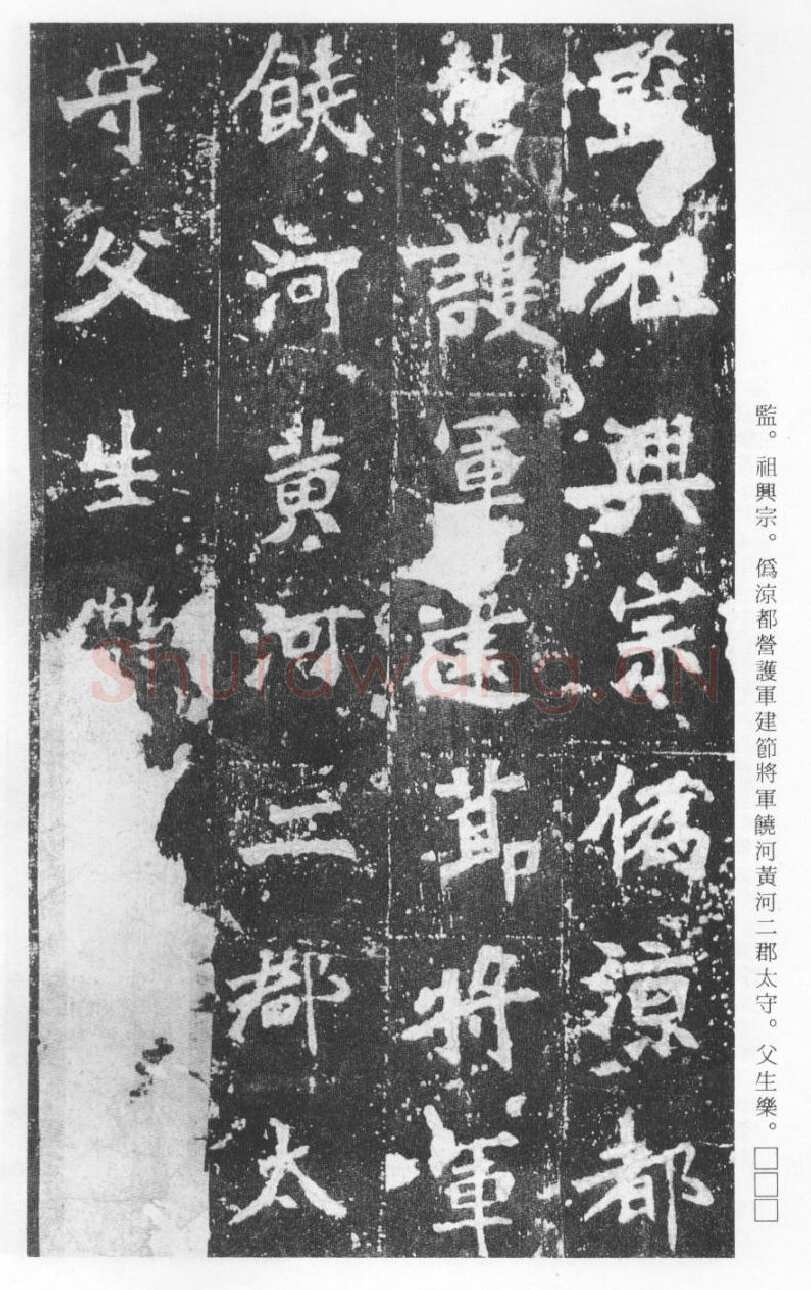 監。祖興宗。僞涼都營護軍建節將軍饒河黃河二郡太守。父生樂。□□□
監祖興宗僞涼都
營護軍建節將軍
饒河黃河二郡太
守父生樂
Shufawang.CN